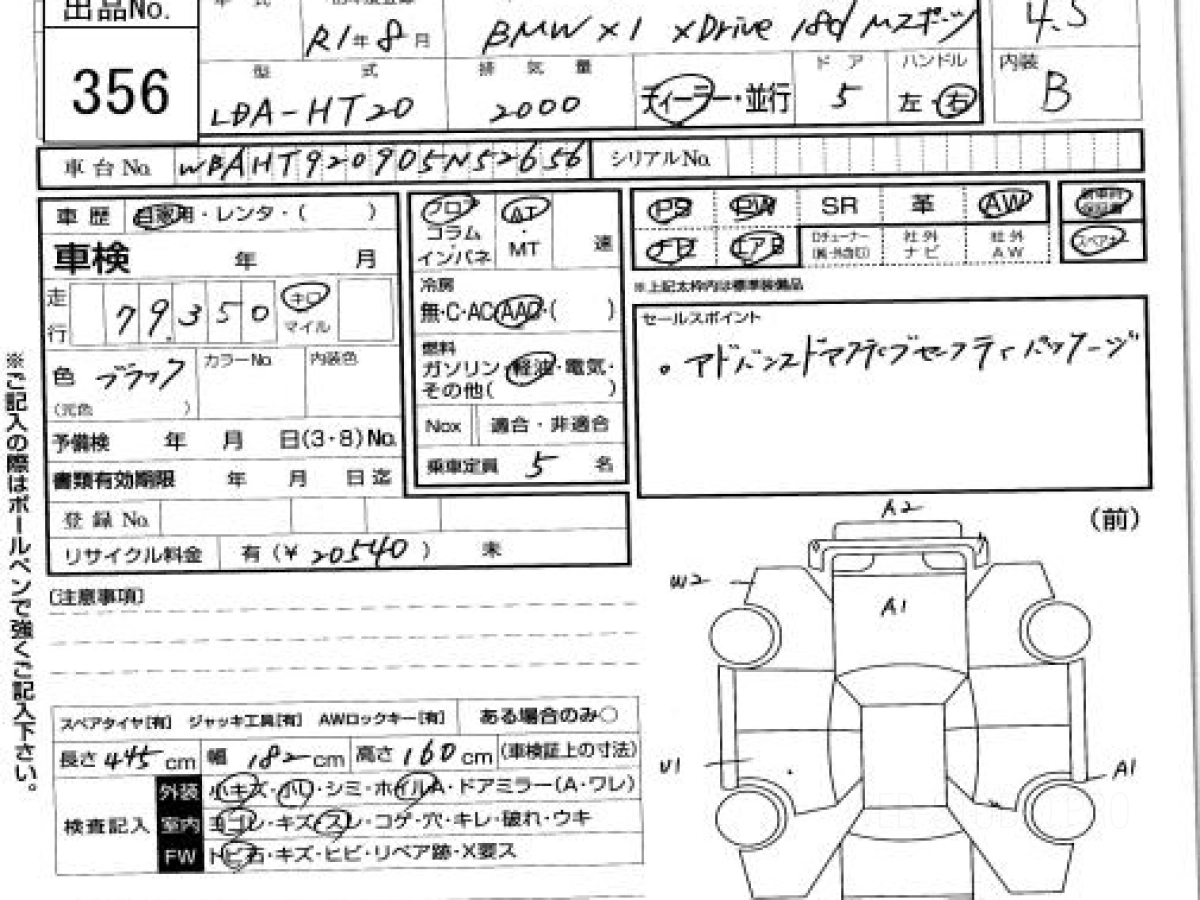 出品No.
356
R1年 8月
BMW X1 xDrive 18d Mスポーツ
4.5
型式
LDA-HT20
排気量
2000
ディーラー・並行
ドア
5
ハンドル
左・右
内装
B
車台No. WBAHT920905N52656
シリアルNo.
車歴 自家用・レンタ・( )
車検 年 月
走行 79.350 キロ マイル
色 ブラック
(元色 )
カラーNo.
内装色
予備検 年 月 日(3・8)No.
書類有効期限 年 月 日迄
登録No.
リサイクル料金 有(¥ 20540 ) 未
フロア
コラム
インパネ
AT
・
MT
速
冷房
無・C・AC・AAC・( )
燃料
ガソリン・軽油・電気・
その他( )
Nox 適合・非適合
乗車定員 5 名
PS PW SR 革 AW
エアB
社外ナビ
社外AW
※上記太枠内は標準装備品
セールスポイント
。アドバンスドアクティブセーフティパッケージ
※ご記入の際はボールペンで強くご記入下さい。
[注意事項]
スペアタイヤ[有] ジャッキ工具[有] AWロックキー[有] ある場合のみ○
長さ 445 cm 幅 182 cm 高さ 160 cm (車検証上の寸法)
検査記入
外装 小キズ・小凹・シミ・ホイルA・ドアミラー(A・ワレ)
室内 ヨゴレ・キズ・スレ・コゲ・穴・キレ・破れ・ウキ
FW トビ石・キズ・ヒビ・リペア跡・X要ス
(前)
A2
W2
A1
U1
A1